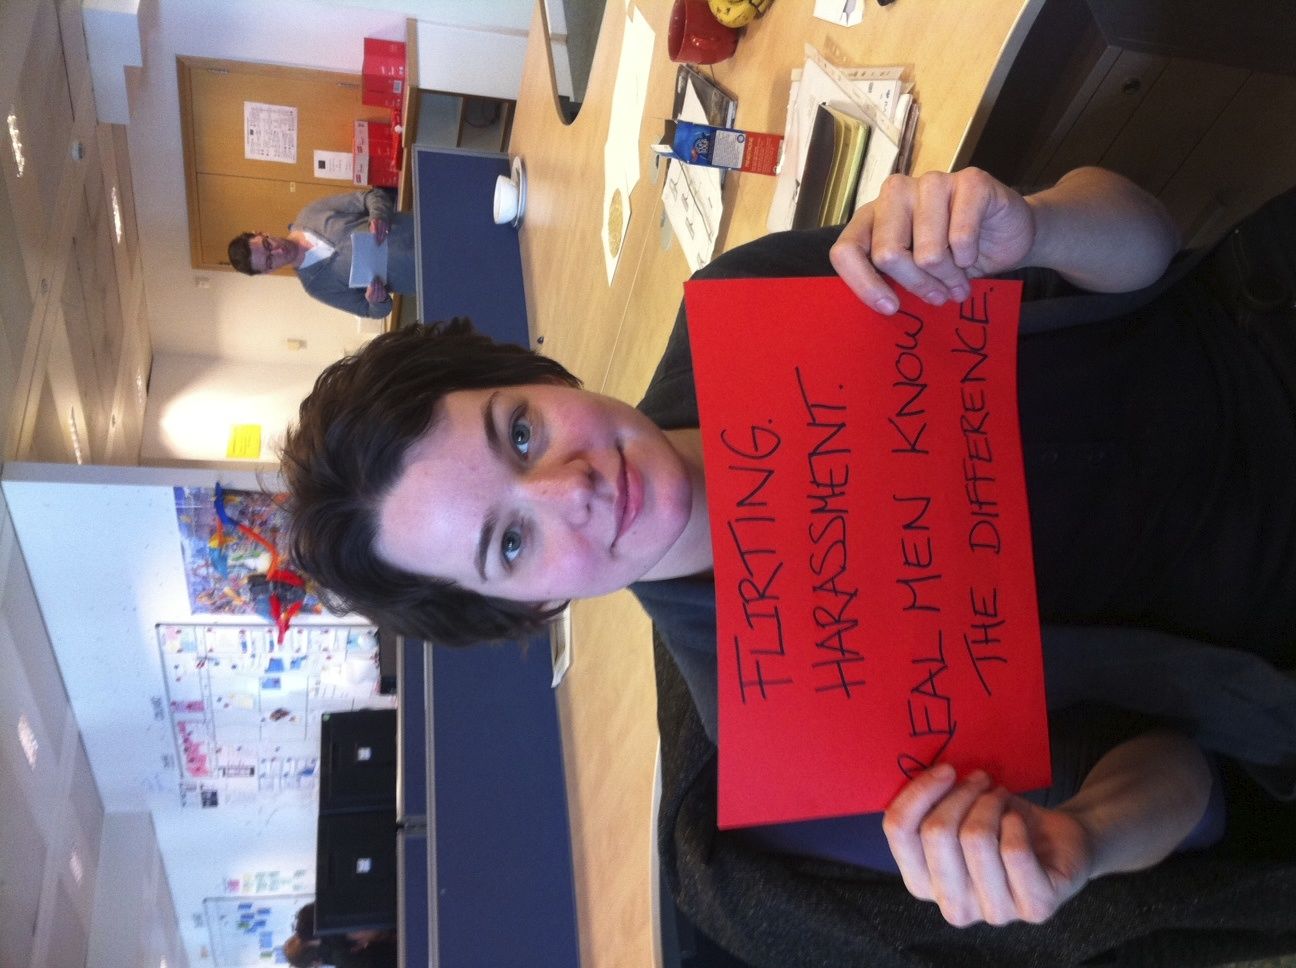 FLIRTING.
HARASSMENT.
REAL MEN KNOW
THE DIFFERENCE.